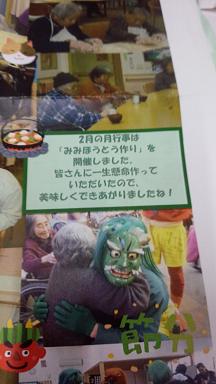 2月の月行事は
「みみほうとう作り」を
開催しました。
皆さんに一生懸命作って
いただいたので、
美味しくできあがりましたね！
節分